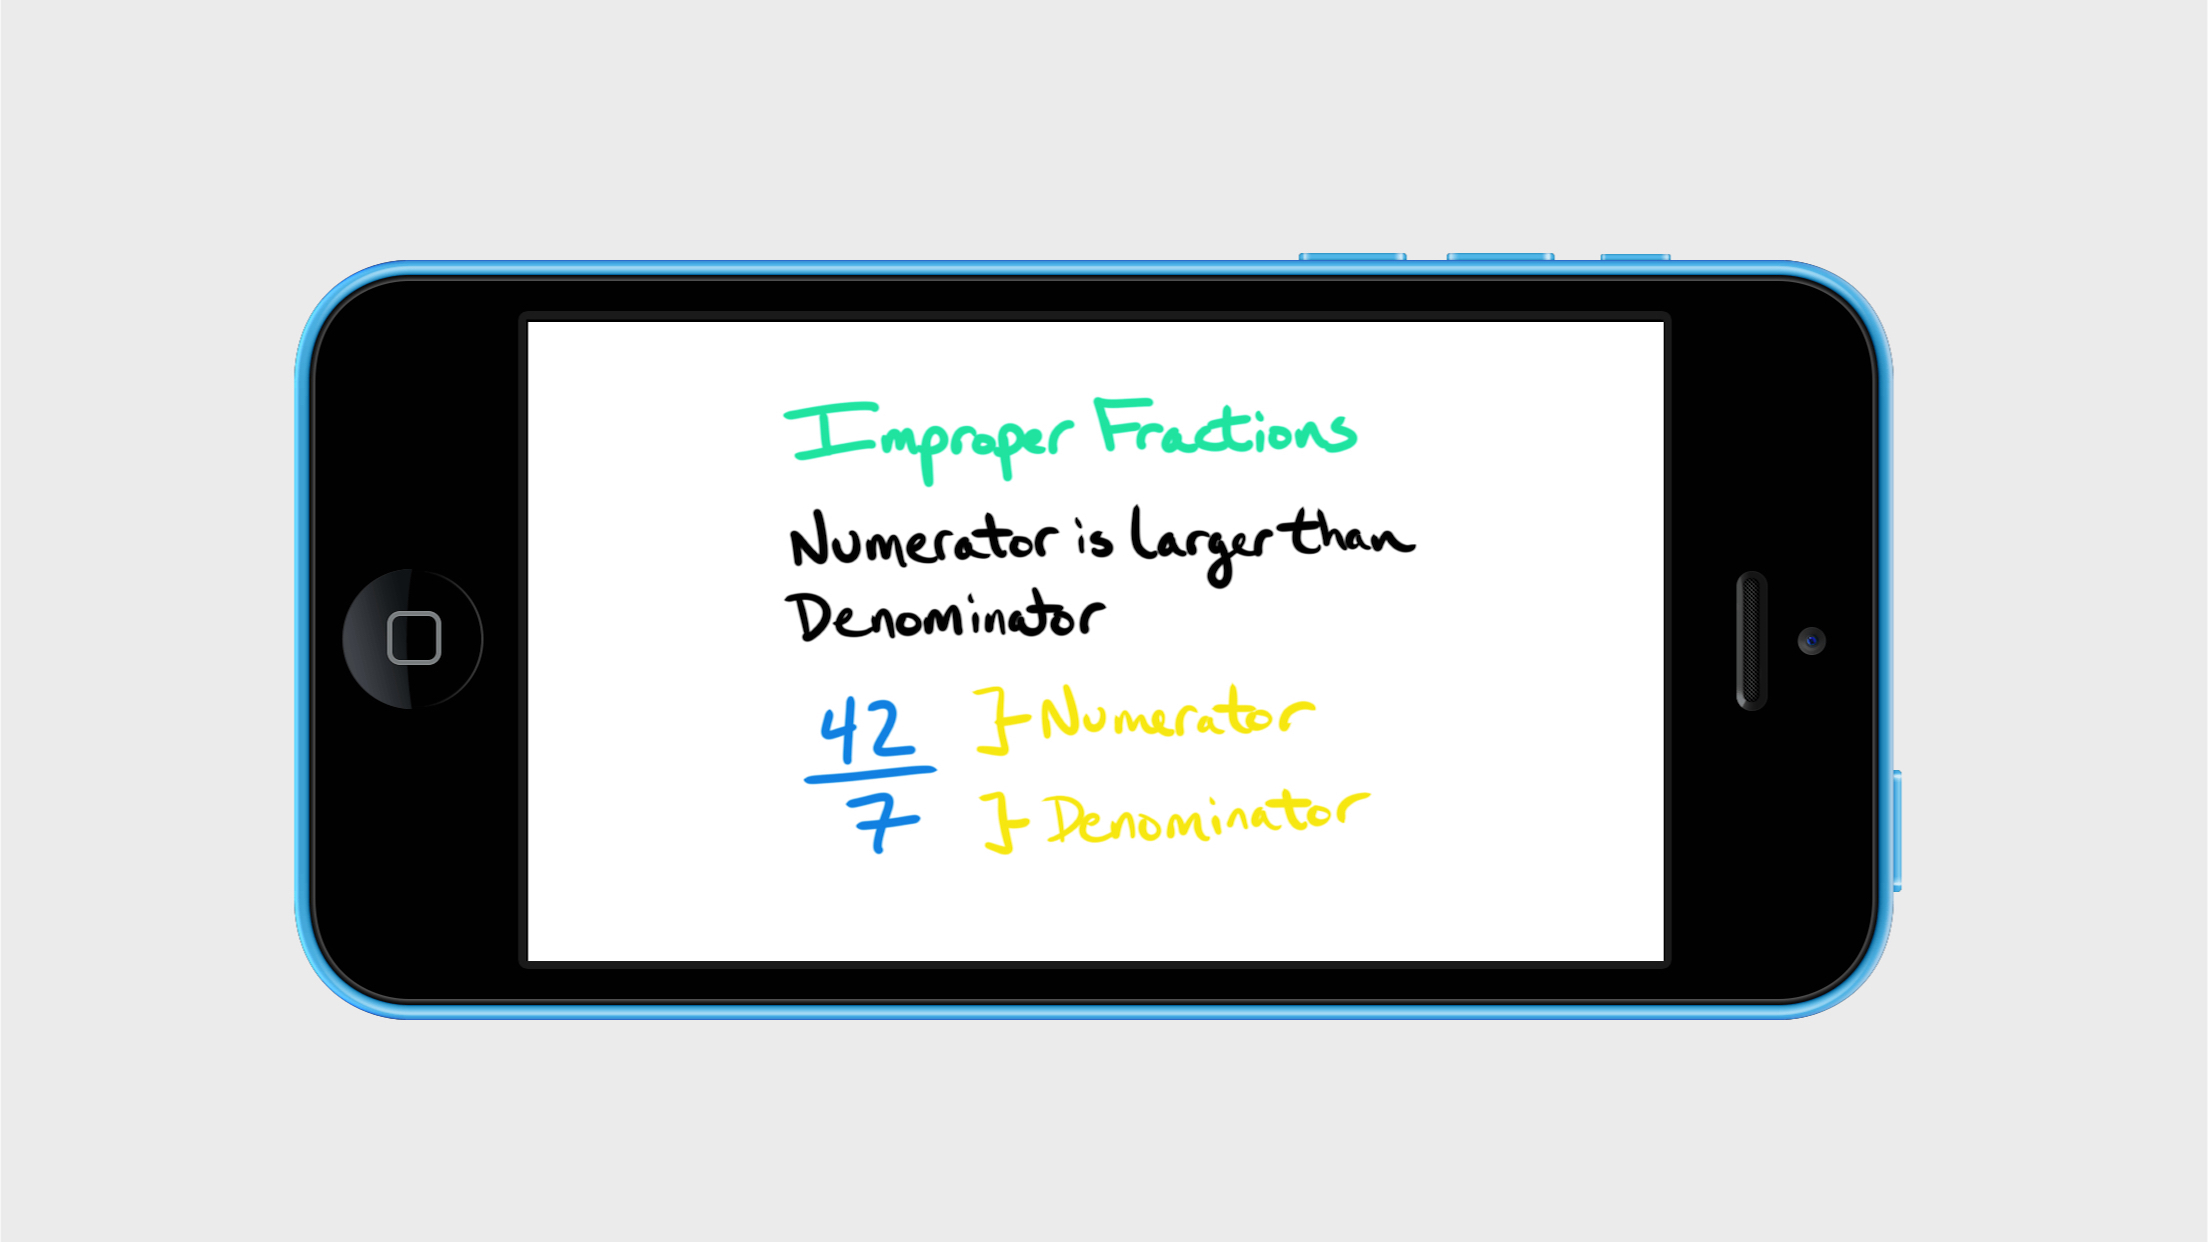 Improper Fractions
Numerator is Larger than
Denominator
42 }-Numerator
7 }-Denominator